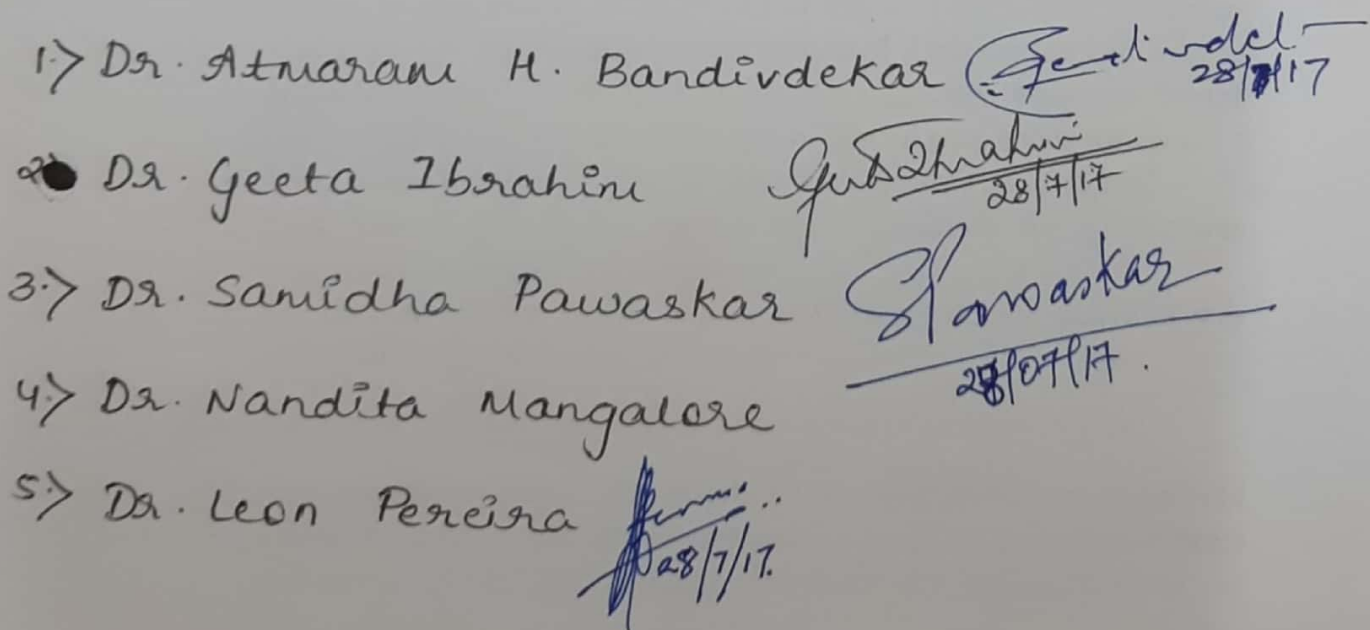 1.> Dr. Atmaram H. Bandivdekar
28/7/17
2 Dr. Geeta Ibrahim
28/7/17
3.> Dr. Samidha Pawaskar SPawaskar
28/07/17.
4.> Dr. Nandita Mangalore
5.> Dr. Leon Pereira
28/7/17.